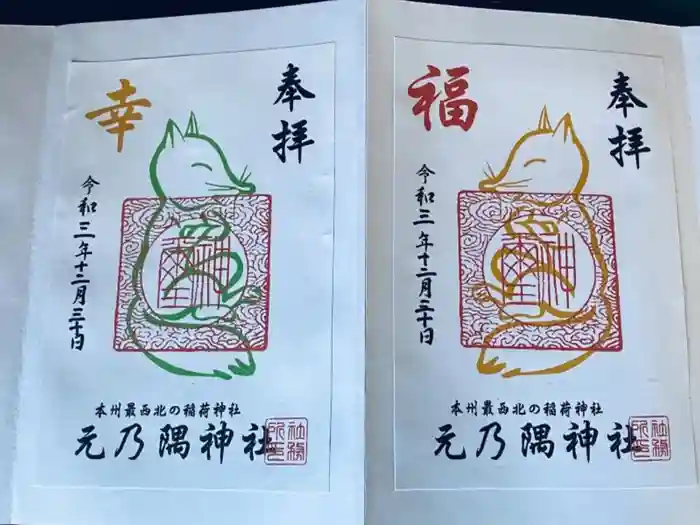 奉拝
幸
令和三年十二月三十日
神霊
本州最西北の稲荷神社
元乃隅神社
社務所印
奉拝
福
令和三年十二月三十日
神霊
本州最西北の稲荷神社
元乃隅神社
社務所印